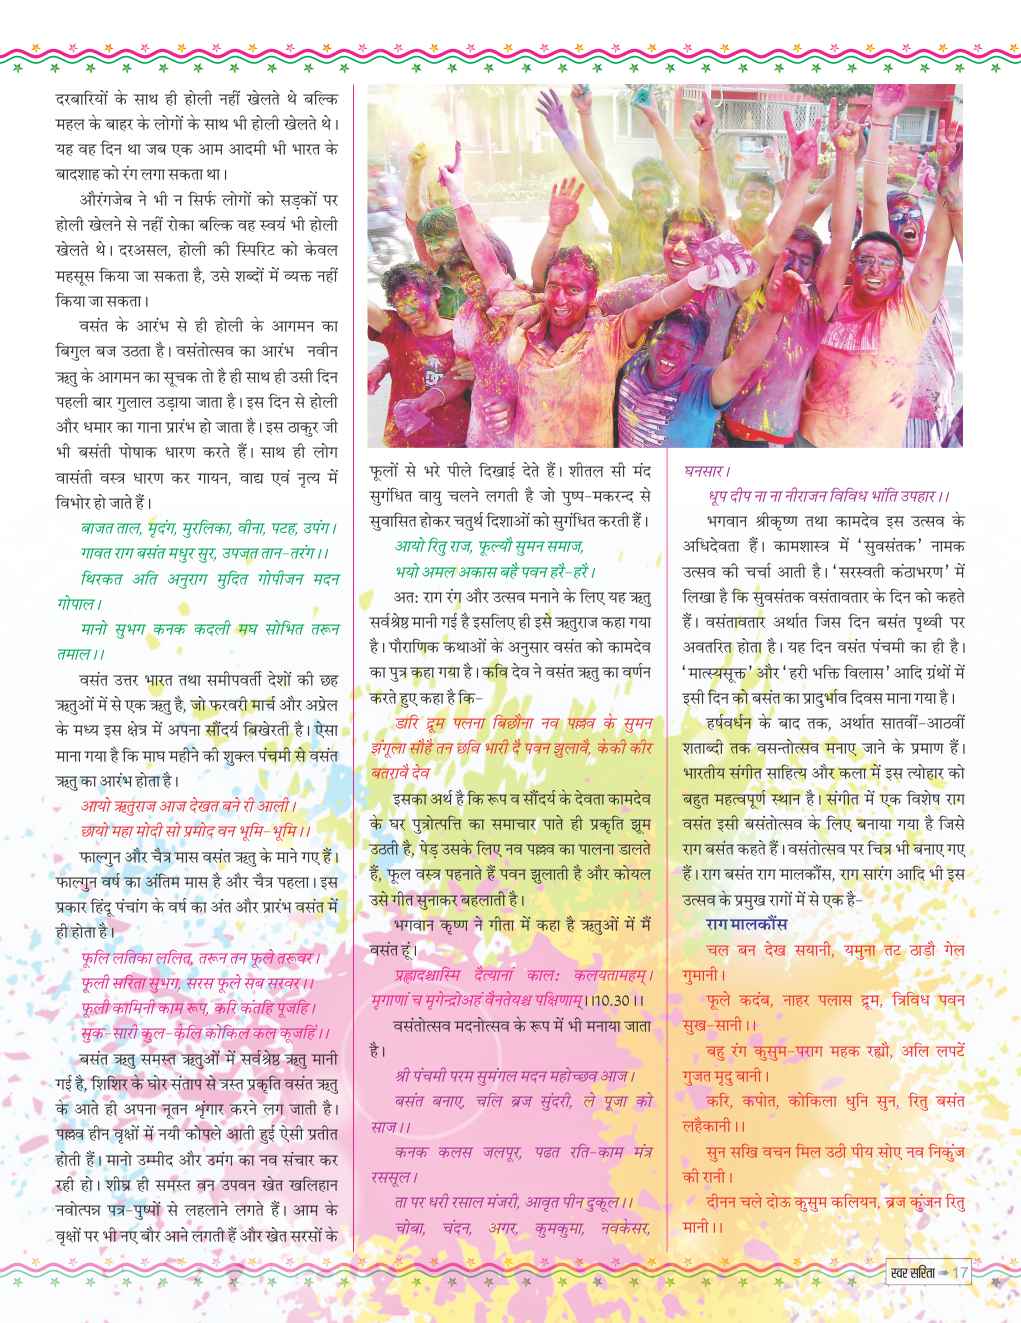 दरबारियों के साथ ही होली नहीं खेलते थे बल्कि
महल के बाहर के लोगों के साथ भी होली खेलते थे।
यह वह दिन था जब एक आम आदमी भी भारत के
बादशाह को रंग लगा सकता था।
औरंगजेब ने भी न सिर्फ लोगों को सड़कों पर
होली खेलने से नहीं रोका बल्कि वह स्वयं भी होली
खेलते थे। दरअसल, होली की स्पिरिट को केवल
महसूस किया जा सकता है, उसे शब्दों में व्यक्त नहीं
किया जा सकता।
वसंत के आरंभ से ही होली के आगमन का
बिगुल बज उठता है। वसंतोत्सव का आरंभ नवीन
ऋतु के आगमन का सूचक तो है ही साथ ही उसी दिन
पहली बार गुलाल उड़ाया जाता है। इस दिन से होली
और धमार का गाना प्रारंभ हो जाता है। इस ठाकुर जी
भी बसंती पोषाक धारण करते हैं। साथ ही लोग
वासंती वस्त्र धारण कर गायन, वाद्य एवं नृत्य में
विभोर हो जाते हैं।
बाजत ताल, मृदंग, मुरलिका, वीना, पटह, उपंग।
गावत राग बसंत मधुर सुर, उपजत तान-तरंग।।
थिरकत अति अनुराग मुदित गोपीजन मदन
गोपाल।
मानो सुभग कनक कदली मघ सोभित तरून
तमाल।।
वसंत उत्तर भारत तथा समीपवर्ती देशों की छह
ऋतुओं में से एक ऋतु है, जो फरवरी मार्च और अप्रेल
के मध्य इस क्षेत्र में अपना सौंदर्य बिखेरती है। ऐसा
माना गया है कि माघ महीने की शुक्ल पंचमी से वसंत
ऋतु का आरंभ होता है।
आयो ऋतुराज आज देखत बने री आली।
छायो महा मोदी सो प्रमोद वन भूमि-भूमि।।
फाल्गुन और चैत्र मास वसंत ऋतु के माने गए हैं।
फाल्गुन वर्ष का अंतिम मास है और चैत्र पहला। इस
प्रकार हिंदू पंचांग के वर्ष का अंत और प्रारंभ वसंत में
ही होता है।
फूलि लतिका ललित, तरून तन फूले तरूवर।
फूली सरिता सुभग, सरस फूले सब सरवर।।
फूली कामिनी काम रूप, करि कंतहि पूजहि।
सुक-सारी कुल-केलि कोकिल कल कूजहिं।।
बसंत ऋतु समस्त ऋतुओं में सर्वश्रेष्ठ ऋतु मानी
गई है, शिशिर के घोर संताप से त्रस्त प्रकृति वसंत ऋतु
के आते ही अपना नूतन शृंगार करने लग जाती है।
पल्लव हीन वृक्षों में नयी कोपले आती हुई ऐसी प्रतीत
होती हैं। मानो उम्मीद और उमंग का नव संचार कर
रही हो। शीघ्र ही समस्त वन उपवन खेत खलिहान
नवोत्पन्न पत्र-पुष्पों से लहलाने लगते हैं। आम के
वृक्षों पर भी नए बौर आने लगती हैं और खेत सरसों के
फूलों से भरे पीले दिखाई देते हैं। शीतल सी मंद
सुगंधित वायु चलने लगती है जो पुष्प-मकरन्द से
सुवासित होकर चतुर्थ दिशाओं को सुगंधित करती हैं।
आयो रितु राज, फूल्यौ सुमन समाज,
भयो अमल अकास बहै पवन हरै-हरै।
अत: राग रंग और उत्सव मनाने के लिए यह ऋतु
सर्वश्रेष्ठ मानी गई है इसलिए ही इसे ऋतुराज कहा गया
है। पौराणिक कथाओं के अनुसार वसंत को कामदेव
का पुत्र कहा गया है। कवि देव ने वसंत ऋतु का वर्णन
करते हुए कहा है कि-
डारि द्रूम पलना बिछौना नव पल्लव के सुमन
झंगूला सौहै तन छवि भारी दै पवन झुलावै, केकी कीर
बतरावै देव
इसका अर्थ है कि रूप व सौंदर्य के देवता कामदेव
के घर पुत्रोत्पत्ति का समाचार पाते ही प्रकृति झूम
उठती है, पेड़ उसके लिए नव पल्लव का पालना डालते
हैं, फूल वस्त्र पहनाते हैं पवन झुलाती है और कोयल
उसे गीत सुनाकर बहलाती है।
भगवान कृष्ण ने गीता में कहा है ऋतुओं में मैं
वसंत हूं।
प्रह्लादश्चास्मि दैत्यानां काल: कलयतामहम्।
मृगाणां च मृगेन्द्रोअहं वैनतेयश्च पक्षिणाम्।।10.30।।
वसंतोत्सव मदनोत्सव के रूप में भी मनाया जाता
है।
श्री पंचमी परम सुमंगल मदन महोच्छव आज।
बसंत बनाए, चलि ब्रज सुंदरी, ले पूजा को
साज।।
कनक कलस जलपूर, पढत रति-काम मंत्र
रससूल।
ता पर धरी रसाल मंजरी, आवृत पीन दुकूल।।
चोवा, चंदन, अगर, कुमकुमा, नवकेसर,
घनसार।
धूप दीप ना ना नीराजन विविध भांति उपहार।।
भगवान श्रीकृष्ण तथा कामदेव इस उत्सव के
अधिदेवता हैं। कामशास्त्र में 'सुवसंतक' नामक
उत्सव की चर्चा आती है। 'सरस्वती कंठाभरण' में
लिखा है कि सुवसंतक वसंतावतार के दिन को कहते
हैं। वसंतावतार अर्थात जिस दिन बसंत पृथ्वी पर
अवतरित होता है। यह दिन वसंत पंचमी का ही है।
'मात्स्यसूक्त' और 'हरी भक्ति विलास' आदि ग्रंथों में
इसी दिन को बसंत का प्रादुर्भाव दिवस माना गया है।
हर्षवर्धन के बाद तक, अर्थात सातवीं-आठवीं
शताब्दी तक वसन्तोत्सव मनाए जाने के प्रमाण हैं।
भारतीय संगीत साहित्य और कला में इस त्योहार को
बहुत महत्वपूर्ण स्थान है। संगीत में एक विशेष राग
वसंत इसी बसंतोत्सव के लिए बनाया गया है जिसे
राग बसंत कहते हैं। वसंतोत्सव पर चित्र भी बनाए गए
हैं। राग बसंत राग मालकौंस, राग सारंग आदि भी इस
उत्सव के प्रमुख रागों में से एक है-
राग मालकौंस
चल बन देख सयानी, यमुना तट ठाडौ गेल
गुमानी।
फूले कदंब, नाहर पलास द्रूम, त्रिविध पवन
सुख-सानी।।
बहु रंग कुसुम-पराग महक रह्यौ, अलि लपटें
गुजत मृदु बानी।
करि, कपोत, कोकिला धुनि सुन, रितु बसंत
लहैकानी।।
सुन सखि वचन मिल उठी पीय सोए नव निकुंज
की रानी।
दीनन चले दोऊ कुसुम कलियन, ब्रज कुंजन रितु
मानी।।
स्वर सरिता ➨ 17